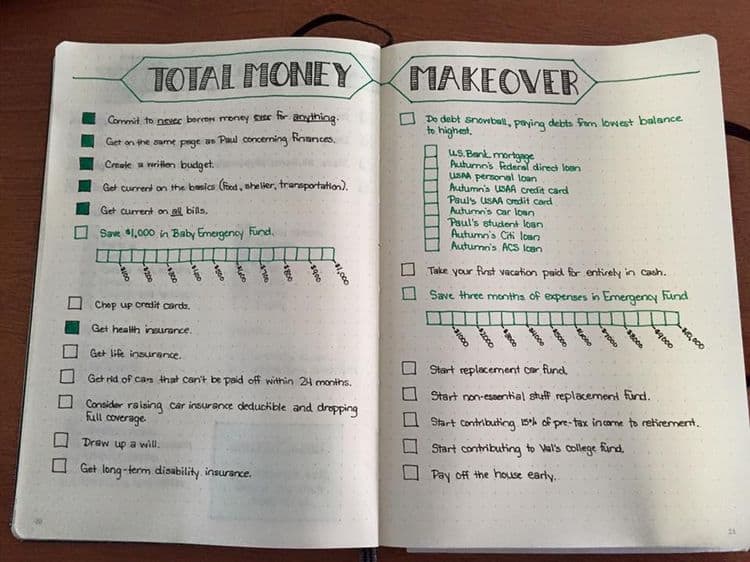 TOTAL MONEY
Commit to never borrow money ever for anything.
Get on the same page as Paul concerning finances.
Create a written budget.
Get current on the basics (food, shelter, transportation).
Get current on all bills.
Save $1,000 in Baby Emergency Fund.
$100 $200 $300 $400 $500 $600 $700 $800 $900 $1,000
Chop up credit cards.
Get health insurance.
Get life insurance.
Get rid of cars that can't be paid off within 24 months.
Consider raising car insurance deductible and dropping
full coverage.
Draw up a will.
Get long-term disability insurance.
20
MAKEOVER
Do debt snowball, paying debts from lowest balance
to highest.
U.S. Bank mortgage
Autumn's Federal direct loan
USAA personal loan
Autumn's USAA credit card
Paul's USAA credit card
Autumn's car loan
Paul's student loan
Autumn's Citi loan
Autumn's ACS loan
Take your first vacation paid for entirely in cash.
Save three months of expenses in Emergency Fund
$1,000 $2,000 $3,000 $4,000 $5,000 $6,000 $7,000 $8,000 $9,000 $10,000
Start replacement car fund.
Start non-essential stuff replacement fund.
Start contributing 15% of pre-tax income to retirement.
Start contributing to Val's college fund.
Pay off the house early.
21